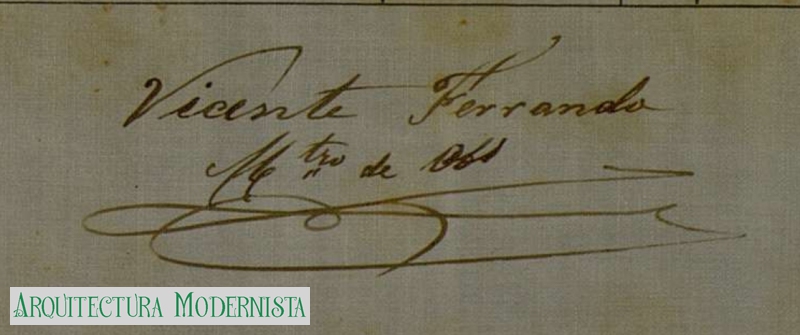 Vicente Ferrando
Mtro de Obs
ARQUITECTURA MODERNISTA